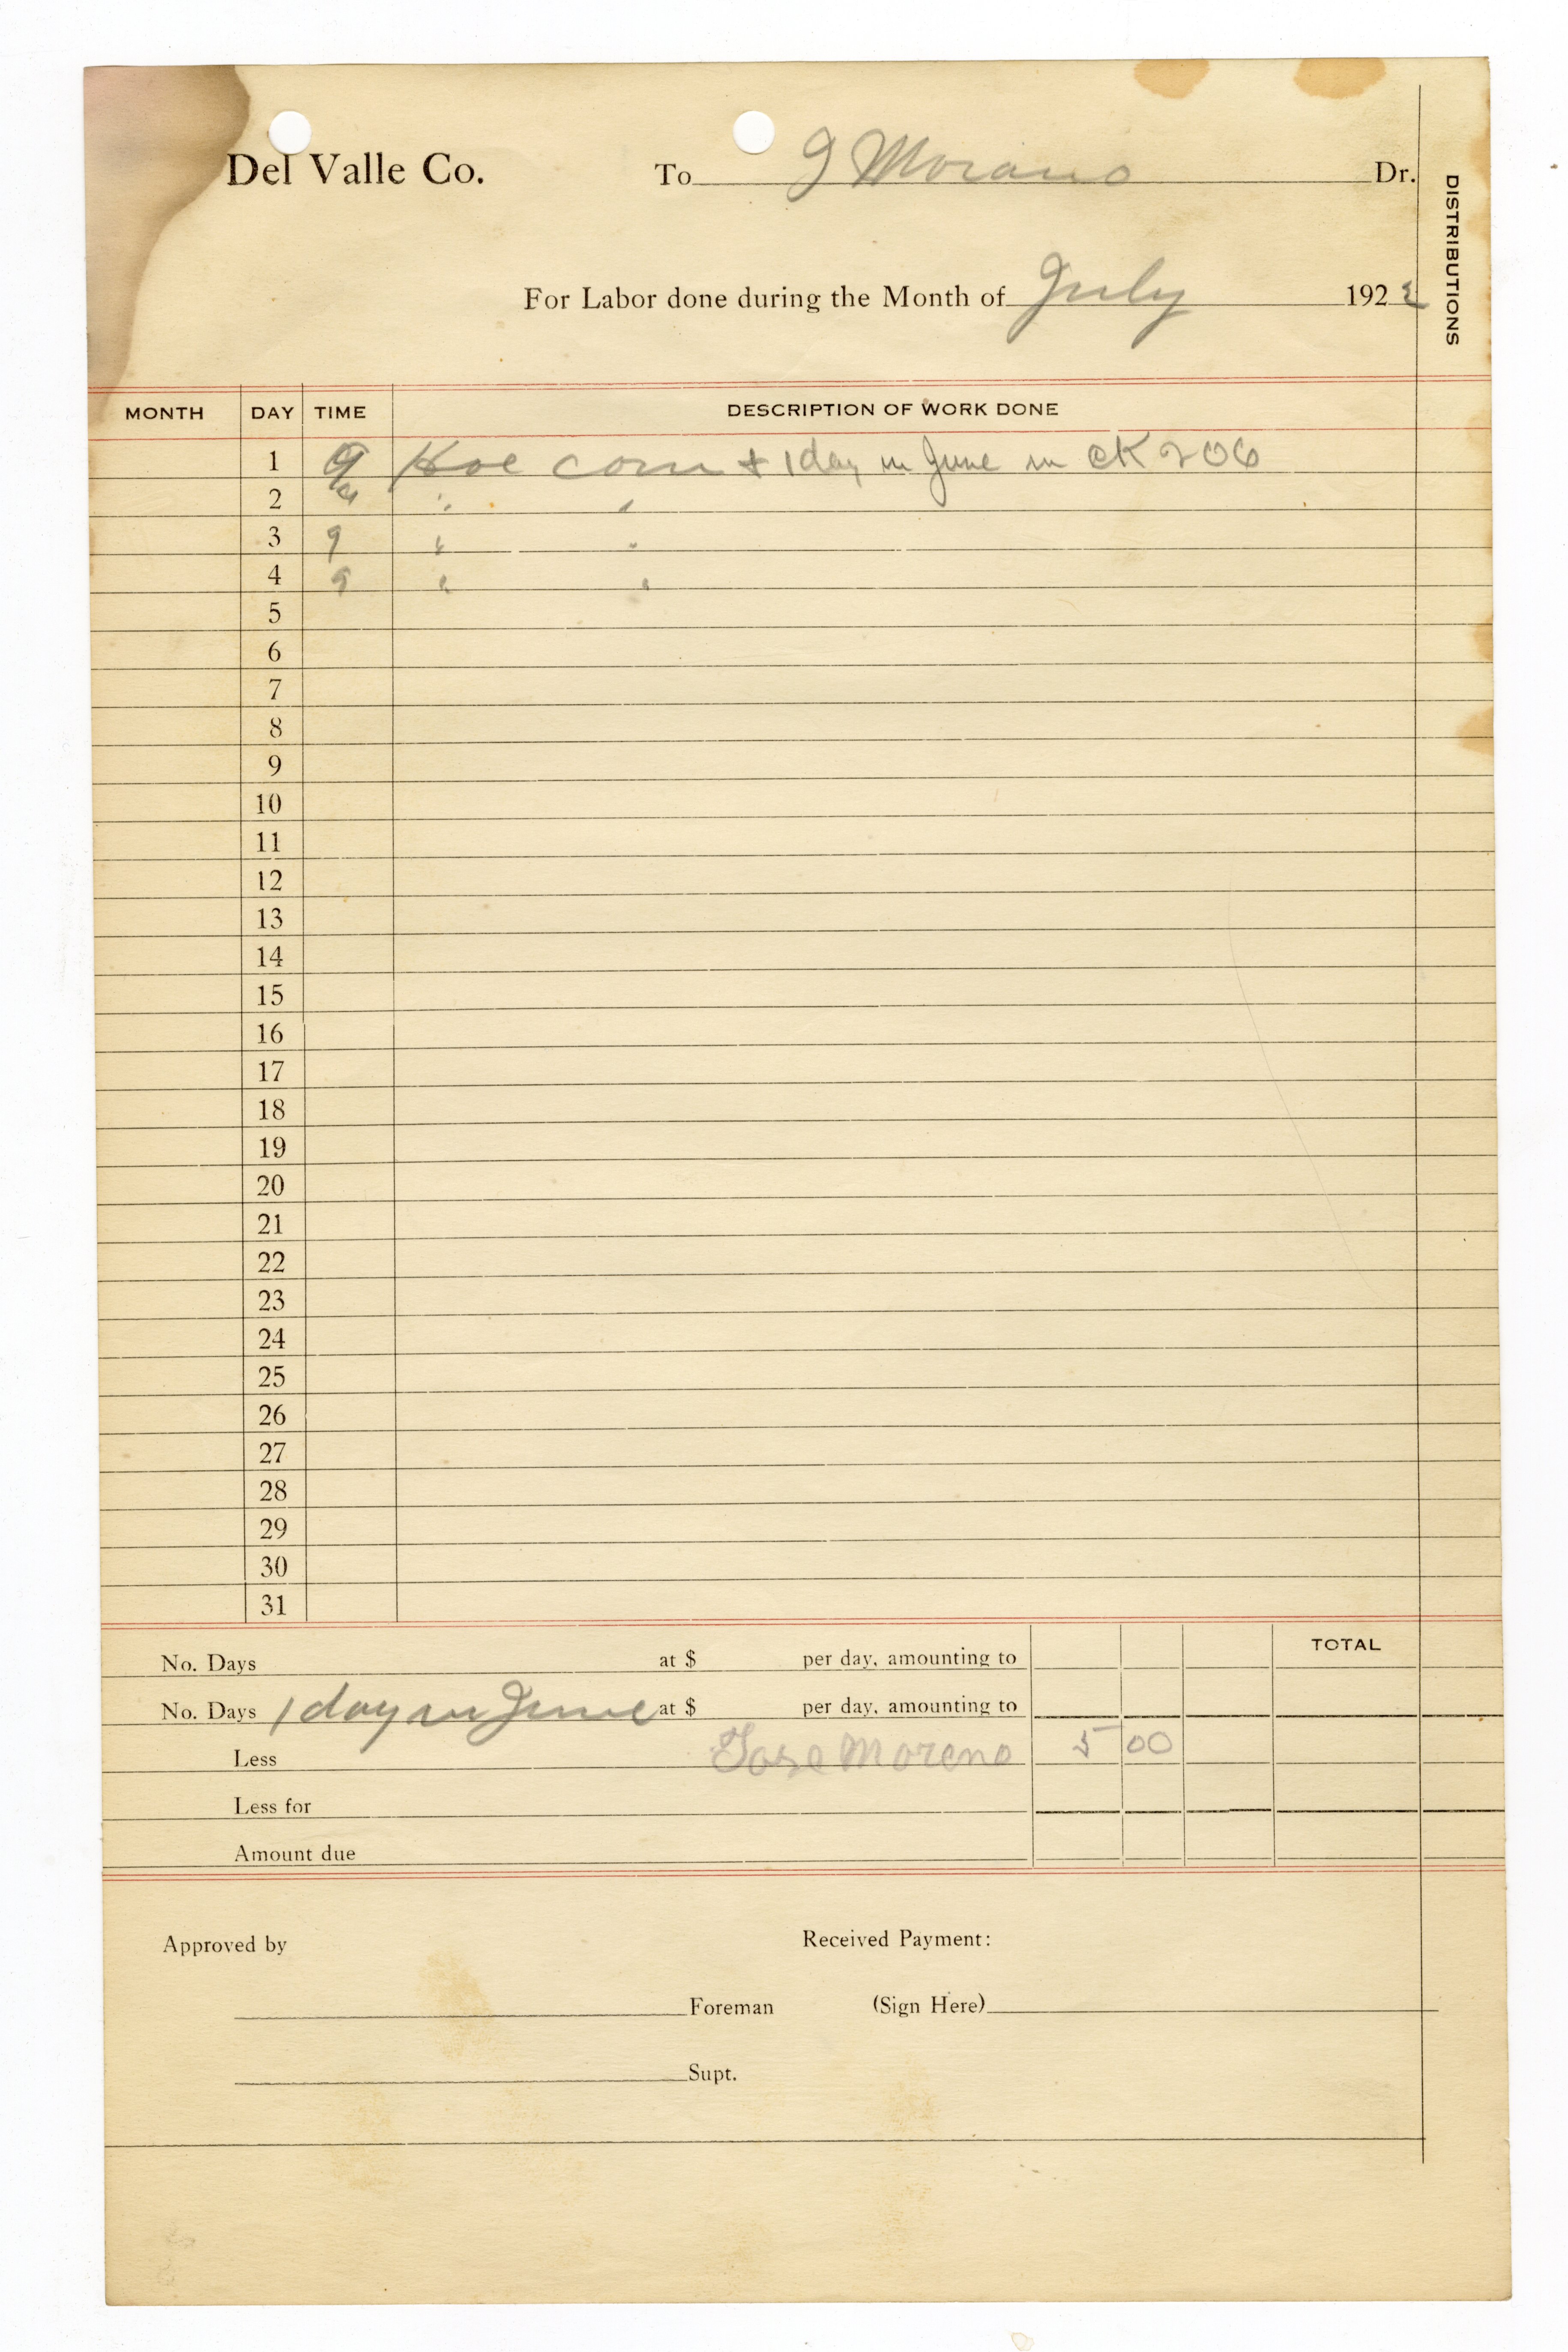 Del Valle Co. To J Morano Dr.
DISTRIBUTIONS
For Labor done during the Month of July 1922
MONTH DAY TIME DESCRIPTION OF WORK DONE
1 9 Hoe corn + 1 day in June in CK 206
2 9 " "
3 9 " "
4 9 " "
5
6
7
8
9
10
11
12
13
14
15
16
17
18
19
20
21
22
23
24
25
26
27
28
29
30
31
TOTAL
No. Days at $ per day, amounting to
No. Days 1 day in June at $ per day, amounting to
Less Jose Moreno 5 00
Less for
Amount due
Approved by Received Payment:
Foreman (Sign Here)
Supt.